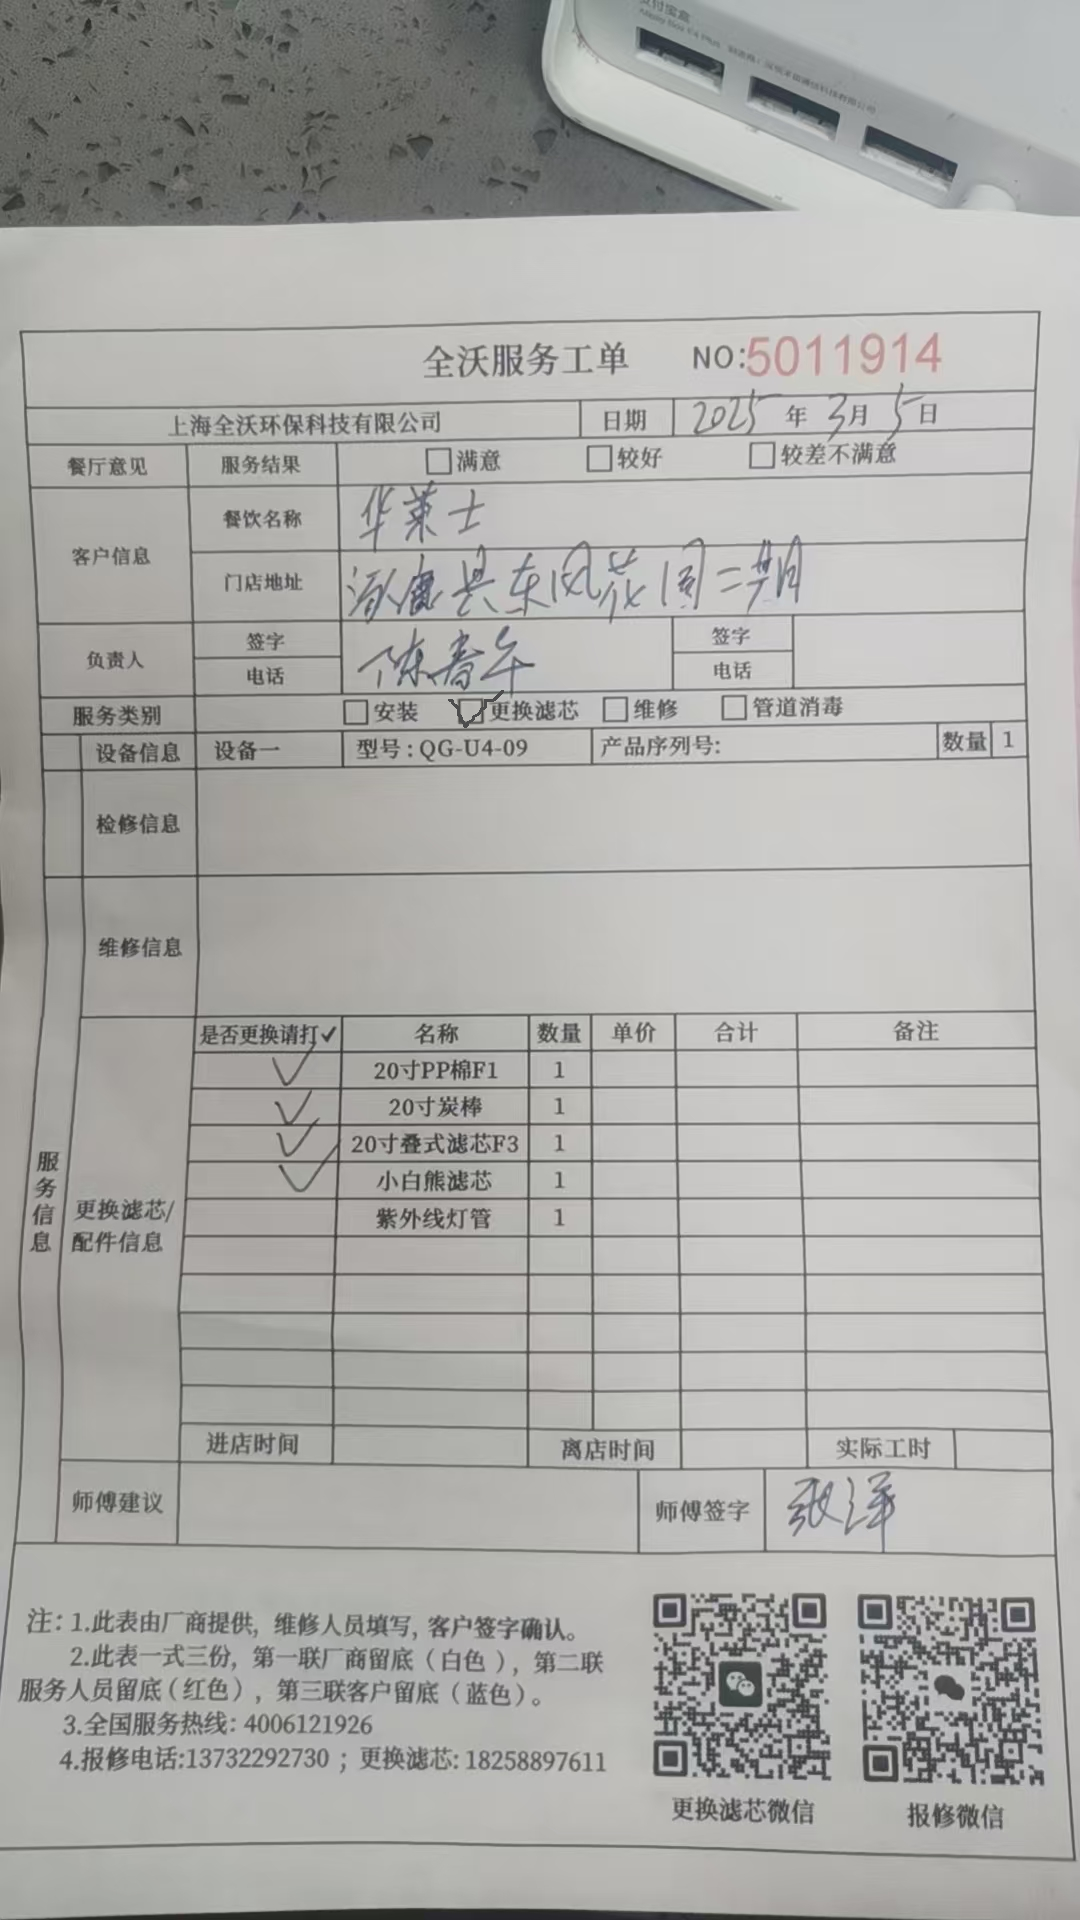 支付宝盒
Alipay Box
全沃服务工单 NO:5011914
上海全沃环保科技有限公司 日期 2025年3月5日
餐厅意见 服务结果 满意 较好 较差不满意
客户信息 餐饮名称 华莱士
门店地址 涿鹿县东风花园二期
负责人 签字 签字
电话 电话
陈春午
服务类别 安装 更换滤芯 维修 管道消毒
设备信息 设备一 型号:QG-U4-09 产品序列号: 数量 1
检修信息
维修信息
服务信息
更换滤芯/
配件信息
是否更换请打✓ 名称 数量 单价 合计 备注
✓ 20寸PP棉F1 1
✓ 20寸炭棒 1
✓ 20寸叠式滤芯F3 1
✓ 小白熊滤芯 1
紫外线灯管 1
进店时间 离店时间 实际工时
师傅建议 师傅签字 张洋
注:1.此表由厂商提供,维修人员填写,客户签字确认。
2.此表一式三份,第一联厂商留底(白色),第二联
服务人员留底(红色),第三联客户留底(蓝色)。
3.全国服务热线:4006121926
4.报修电话:13732292730;更换滤芯:18258897611
更换滤芯微信 报修微信